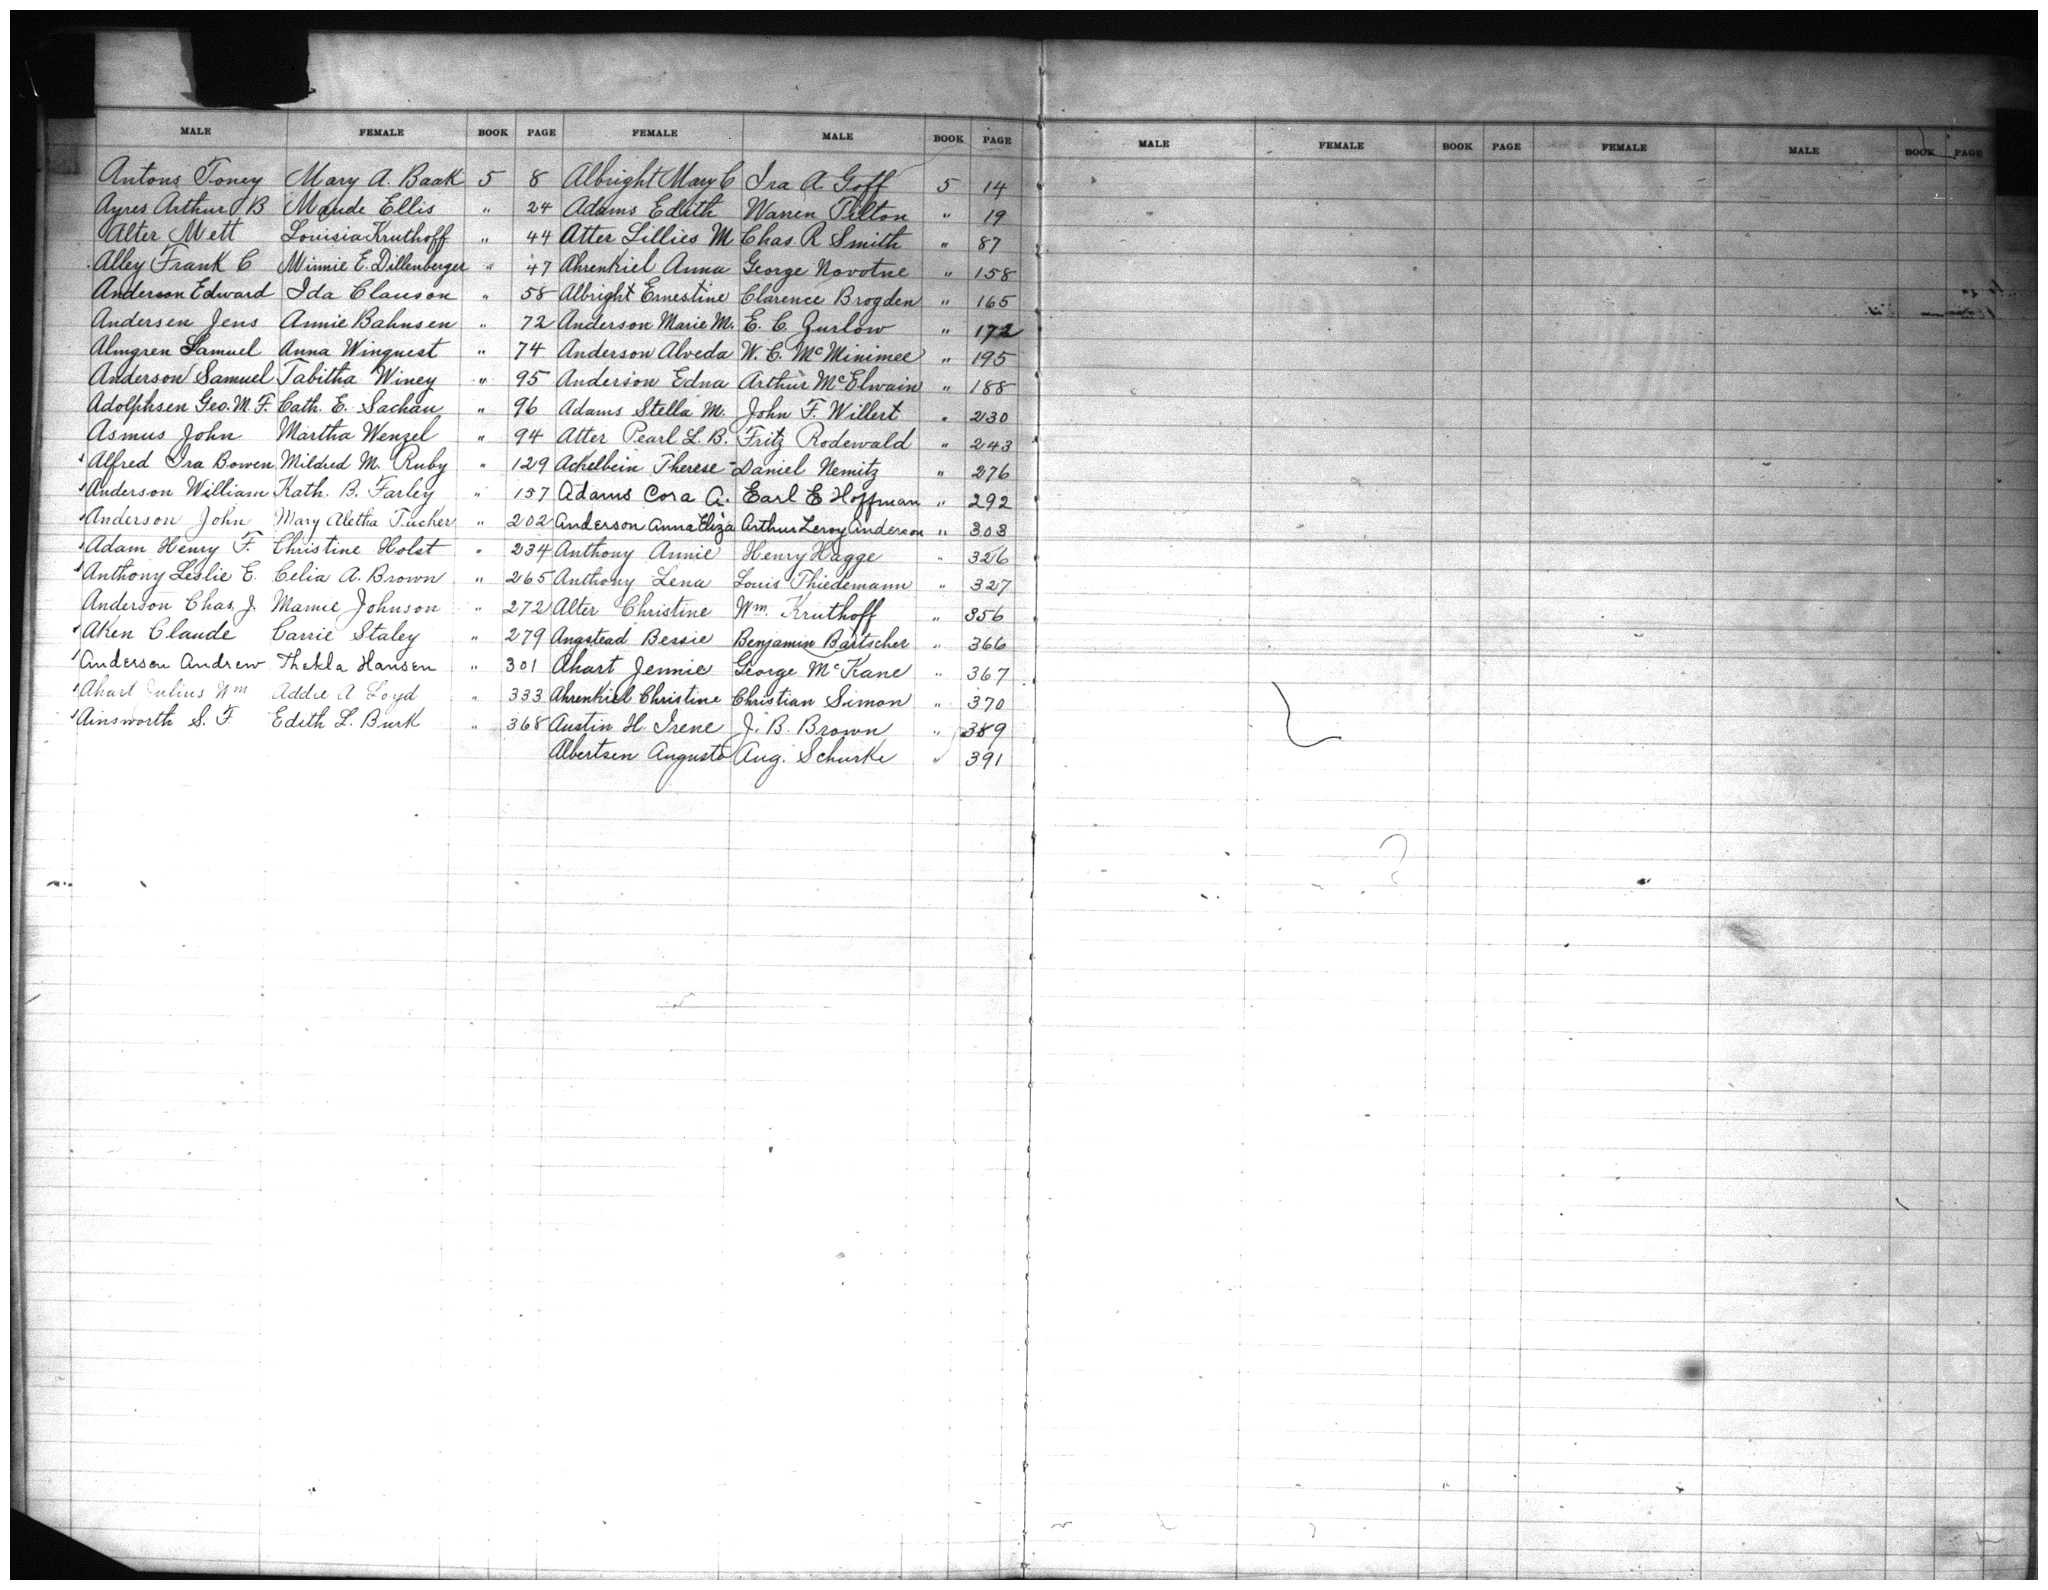 MALE FEMALE BOOK PAGE FEMALE MALE BOOK PAGE MALE FEMALE BOOK PAGE FEMALE MALE BOOK PAGE
Antons Toney Mary A. Baak 5 8 Albright Mary C Ira A. Goff 5 14
Ayres Arthur B Maude Ellis " 24 Adams Edith Warren Pilton " 19
Alter Mett Louisia Kruthoff " 44 Atter Lillies M Chas. R Smith " 87
Alley Frank C Minnie E. Dillenberger " 47 Ahrenkiel Anna George Novotne " 158
Anderson Edward Ida Clauson " 58 Albright Ernestine Clarence Brogden " 165
Andersen Jens Annie Bahnsen " 72 Anderson Marie M. E. C. Zurlow " 172
Almgren Samuel Anna Winquest " 74 Anderson Alveda W. C. McMinimee " 195
Anderson Samuel Tabitha Winey " 95 Anderson Edna Arthur McElwain " 188
Adolphsen Geo. M. F. Cath. E. Sachau " 96 Adams Stella M. John F. Willert " 230
Asmus John Martha Wenzel " 94 Atter Pearl L. B. Fritz Rodewald " 243
Alfred Ira Bowen Mildred M. Ruby " 129 Ackelbein Therese - Daniel Nemitz " 276
Anderson William Kath. B. Farley " 157 Adams Cora A. Earl E Hoffman " 292
Anderson John Mary Aletha Tucker " 202 Anderson Anna Eliza Arthur Leroy Anderson " 303
Adam Henry F. Christine Holst " 234 Anthony Annie Henry Hagge " 326
Anthony Leslie E. Celia A. Brown " 265 Anthony Lena Louis Thiedemann " 327
Anderson Chas. J. Mamie Johnson " 272 Alter Christine Wm. Kruthoff " 356
Aken Claude Carrie Staley " 279 Angstead Bessie Benjamin Bartscher " 366
Anderson Andrew Thekla Hansen " 301 Ahart Jennie George McKane " 367
Ahart Julius Wm Addie A Loyd " 333 Ahrenkiel Christine Christian Simon " 370
Ainsworth S. F Edith L. Burk " 368 Austin H. Irene J. B. Brown " 389
Albertsen Augusta Aug. Schurke " 391